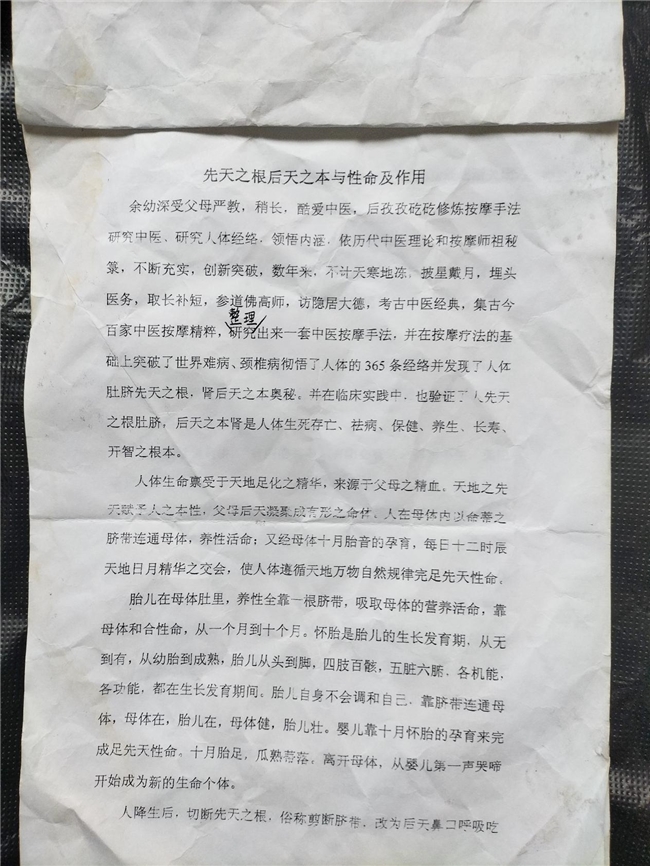 先天之根后天之本与性命及作用
余幼深受父母严教，稍长，酷爱中医，后孜孜矻矻修炼按摩手法
研究中医、研究人体经络，领悟内涵，依历代中医理论和按摩师祖秘
箓，不断充实，创新突破，数年来，不计天寒地冻，披星戴月，埋头
医务，取长补短，参道佛高师，访隐居大德，考古中医经典，集古今
整理
百家中医按摩精粹，研究出来一套中医按摩手法，并在按摩疗法的基
础上突破了世界难病、颈椎病彻悟了人体的365条经络并发现了人体
肚脐先天之根，肾后天之本奥秘。并在临床实践中，也验证了人先天
之根肚脐，后天之本肾是人体生死存亡、祛病、保健、养生、长寿、
开智之根本。
人体生命禀受于天地足化之精华，来源于父母之精血。天地之先
天赋予人之本性，父母后天凝聚成有形之命体。人在母体内以命蒂之
脐带连通母体，养性活命；又经母体十月胎音的孕育，每日十二时辰
天地日月精华之交会，使人体遵循天地万物自然规律完足先天性命。
胎儿在母体肚里，养性全靠一根脐带，吸取母体的营养活命，靠
母体和合性命，从一个月到十个月。怀胎是胎儿的生长发育期，从无
到有，从幼胎到成熟，胎儿从头到脚，四肢百骸，五脏六腑，各机能，
各功能，都在生长发育期间。胎儿自身不会调和自己，靠脐带连通母
体，母体在，胎儿在，母体健，胎儿壮。婴儿靠十月怀胎的孕育来完
成足先天性命。十月胎足，瓜熟蒂落。离开母体，从婴儿第一声哭啼
开始成为新的生命个体。
人降生后，切断先天之根，俗称剪断脐带，改为后天鼻口呼吸吃